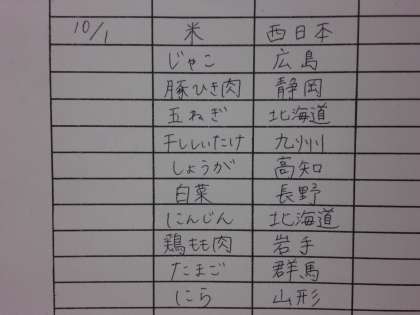 10/1 米 西日本
じゃこ 広島
豚ひき肉 静岡
玉ねぎ 北海道
干ししいたけ 九州
しょうが 高知
白菜 長野
にんじん 北海道
鶏もも肉 岩手
たまご 群馬
にら 山形